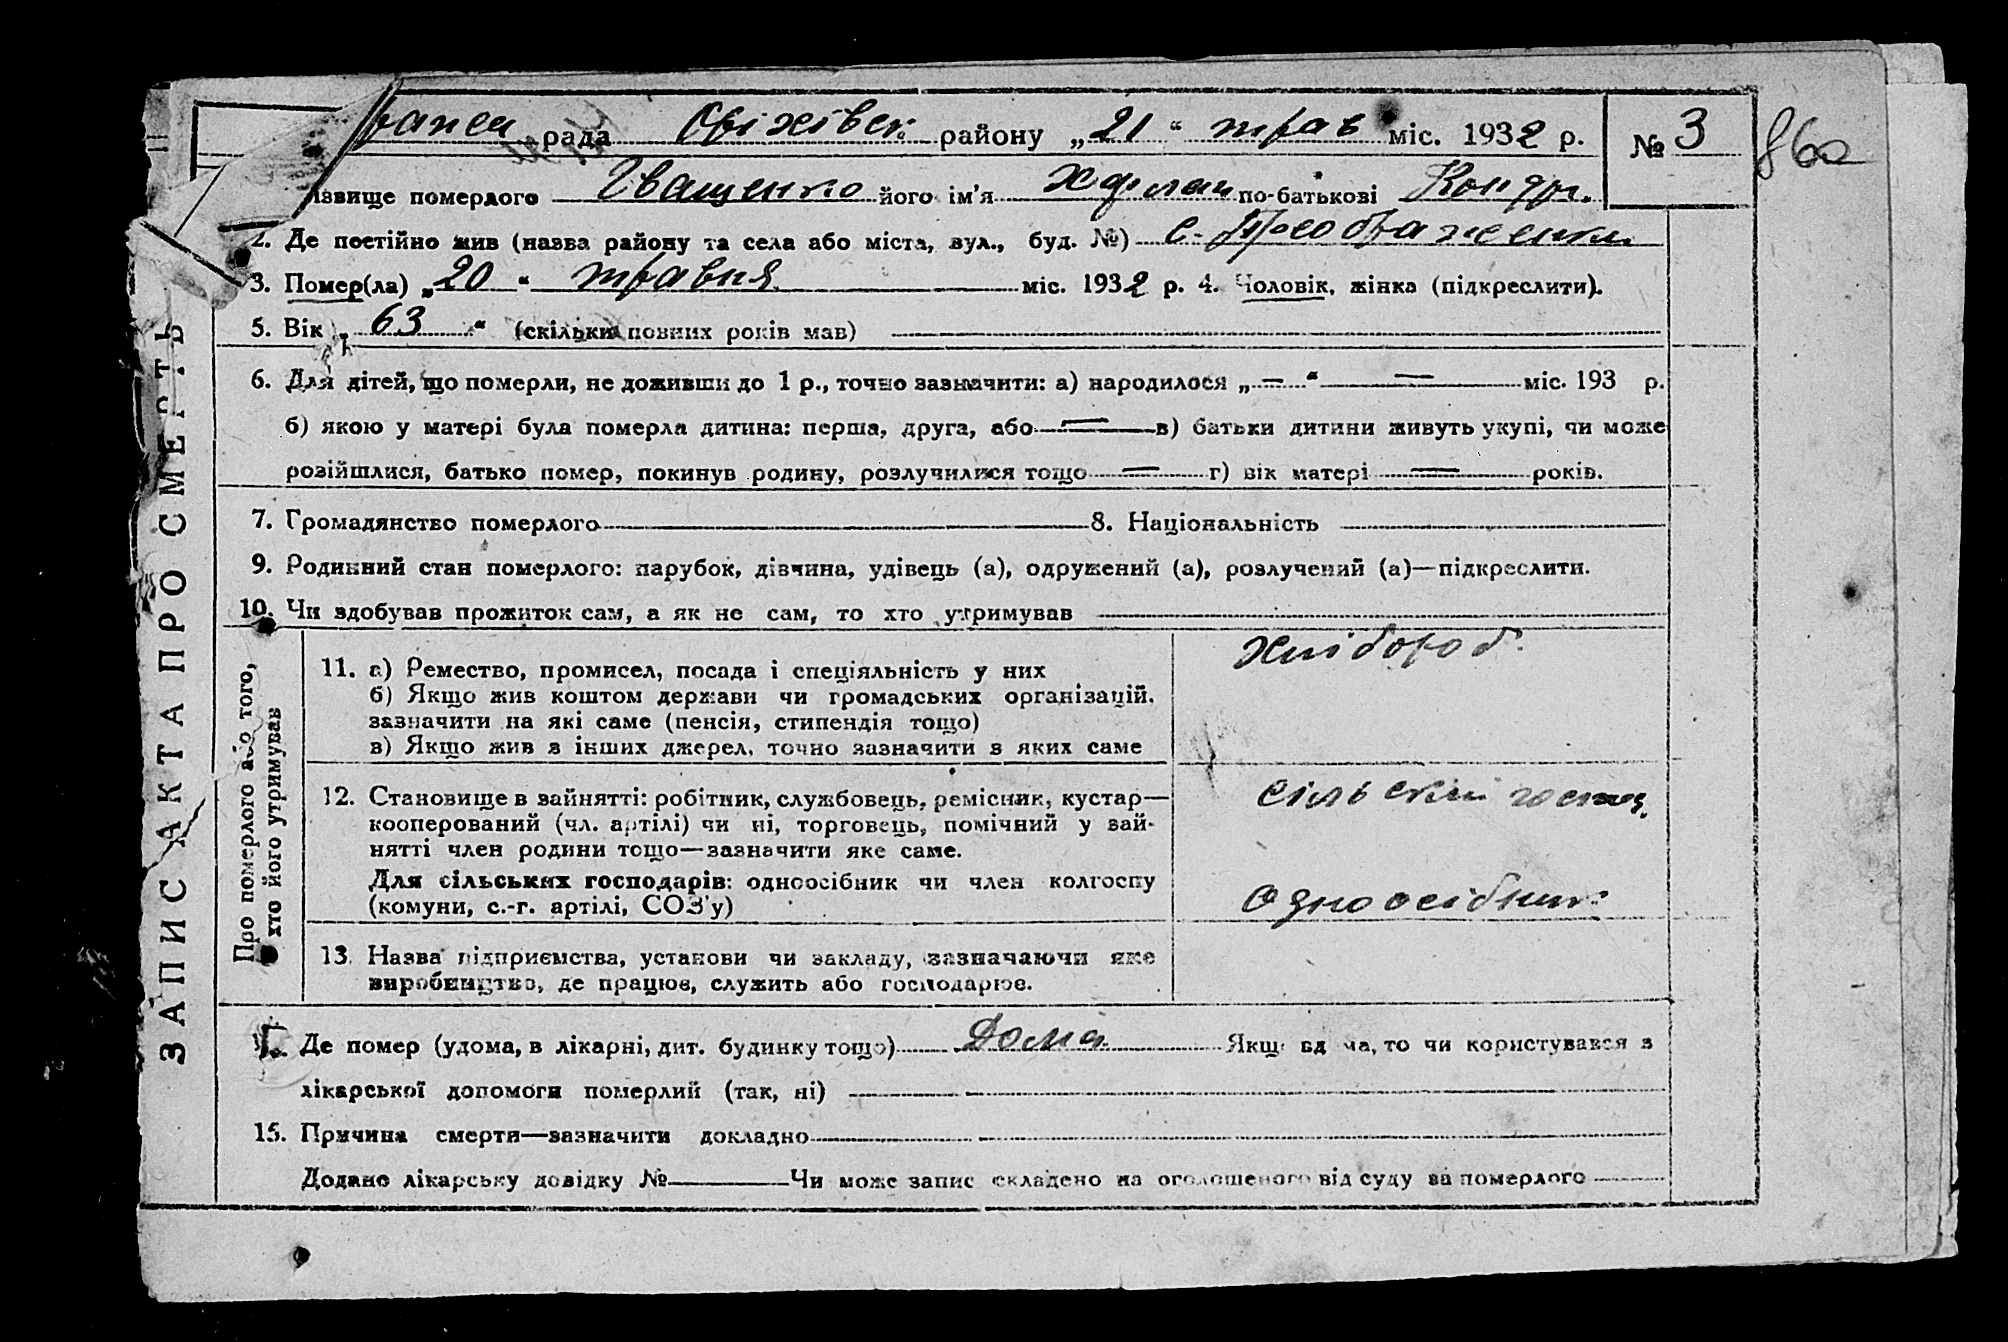 рада Оріхівськ. району „21“ трав міс. 1932 р. № 3
86
ізвище померлого Іващенко його ім'я по-батькові Кондр.
2. Де постійно жив (назва району та села або міста, вул., буд. №) с. Преображенки
3. Помер(ла) „20“ травня міс. 1932 р. 4. Чоловік, жінка (підкреслити).
5. Вік „63“ (скільки повних років мав)
6. Для дітей, що померли, не доживши до 1 р., точно зазначити: а) народилося „—“ — міс. 193 р.
б) якою у матері була померла дитина: перша, друга, або — в) батьки дитини живуть укупі, чи може
розійшлися, батько помер, покинув родину, розлучилися тощо — г) вік матері — років.
7. Громадянство померлого 8. Національність
9. Родинний стан померлого: парубок, дівчина, удівець (а), одружений (а), розлучений (а)—підкреслити.
10. Чи здобував прожиток сам, а як не сам, то хто утримував
ЗАПИС АКТА ПРО СМЕРТЬ
Про померлого або того,
хто його утримував
11. а) Ремество, промисел, посада і спеціяльність у них
б) Якщо жив коштом держави чи громадських організацій,
зазначити на які саме (пенсія, стипендія тощо)
в) Якщо жив з інших джерел, точно зазначити з яких саме
хлібороб.
12. Становище в зайнятті: робітник, службовець, ремісник, кустар—
кооперований (чл. артілі) чи ні, торговець, помічний у зай-
нятті член родини тощо—зазначити яке саме.
Для сільських господарів: одноосібник чи член колгоспу
(комуни, с.-г. артілі, СОЗ'у)
сільский господ.
одноосібник
13. Назва підприємства, установи чи закладу, зазначаючи яке
виробництво, де працює, служить або господарює.
Де помер (удома, в лікарні, дит. будинку тощо) Дома Якщо вдома, то чи користувався з
лікарської допомоги померлий (так, ні)
15. Причина смерти—зазначити докладно
Додано лікарську довідку № Чи може запис складено на оголошеного від суду за померлого